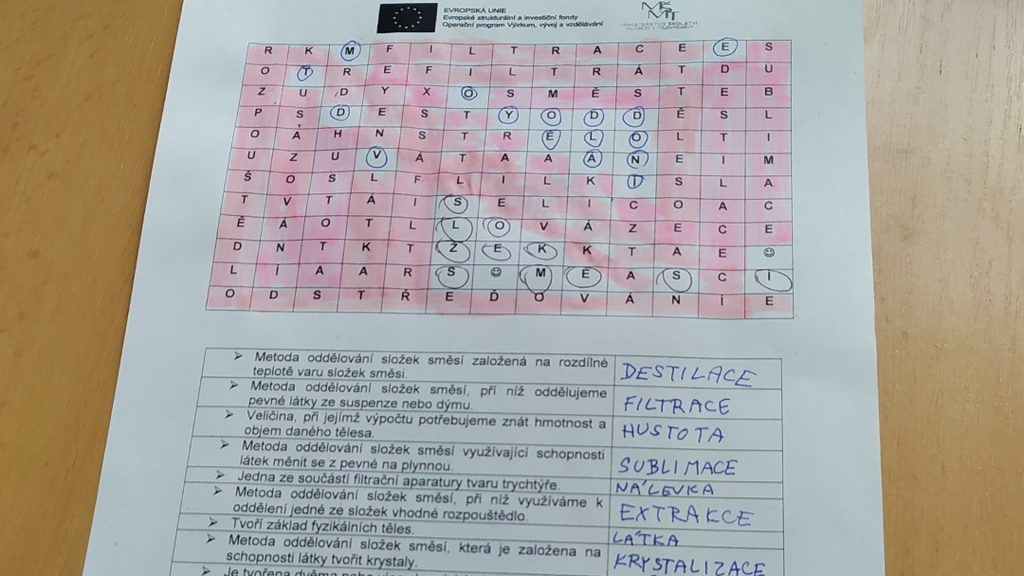 EVROPSKÁ UNIE
Evropské strukturální a investiční fondy
Operační program Výzkum, vývoj a vzdělávání
R K M F I L T R A C E E S
O T R E F I L T R Á T D U
Z U D Y X O S M Ě S T E B
P S D E S T Y O D D Ě S L
O Á H N S T R E L O L T I
U Z U V Á T A A Á N E I M
Š O S L F L I L K Í S L A
T V T Á I S E L I C O A C
Ě Á O T L L O V Á Z C E
D N T K T Z E K K T A E ☺
L Í A A R S ☺ M Ě A S C I
O D S T Ř E Ď O V Á N Í E
➢ Metoda oddělování složek směsí založená na rozdílné
teplotě varu složek směsi. DESTILACE
➢ Metoda oddělování složek směsí, při níž oddělujeme
pevné látky ze suspenze nebo dýmu. FILTRACE
➢ Veličina, při jejímž výpočtu potřebujeme znát hmotnost a
objem daného tělesa. HUSTOTA
➢ Metoda oddělování složek směsí využívající schopnosti
látek měnit se z pevné na plynnou. SUBLIMACE
➢ Jedna ze součástí filtrační aparatury tvaru trychtýře. NÁLEVKA
➢ Metoda oddělování složek směsí, při níž využíváme k
oddělení jedné ze složek vhodné rozpouštědlo. EXTRAKCE
➢ Tvoří základ fyzikálních těles. LÁTKA
➢ Metoda oddělování složek směsí, která je založena na
schopnosti látky tvořit krystaly. KRYSTALIZACE
➢ Je tvořena dvěma nebo více